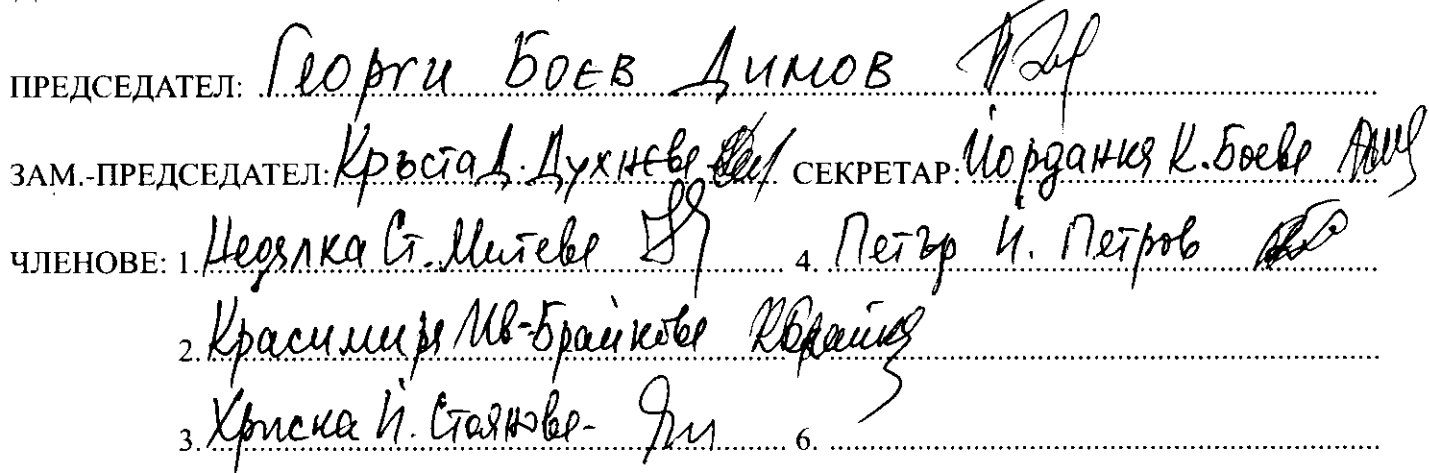 ПРЕДСЕДАТЕЛ: Георги Боев Димов
ЗАМ.-ПРЕДСЕДАТЕЛ: Кръста Д. Духнева СЕКРЕТАР: Йорданка К. Боева
ЧЛЕНОВЕ: 1. Недялка Ст. Митева 4. Петър И. Петров
2. Красимира Ив-Брайкова
3. Христина Й. Стоянова- 6.